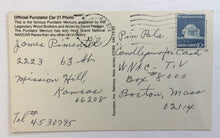 Official Purolator Car 21 Photo
This is the famous Purolator Mercury prepared by the
Legendary Wood Brothers and driven by David Pearson.
The Purolator Mercury has won more Grand National
NASCAR Races than any other car in history.
James Pimental
2223 63 St
Mission Hill,
Kansas
66208
Tel # 4530975
Pin Pals
WNAC-T.V.
Box #8000
Boston, Mass
02114